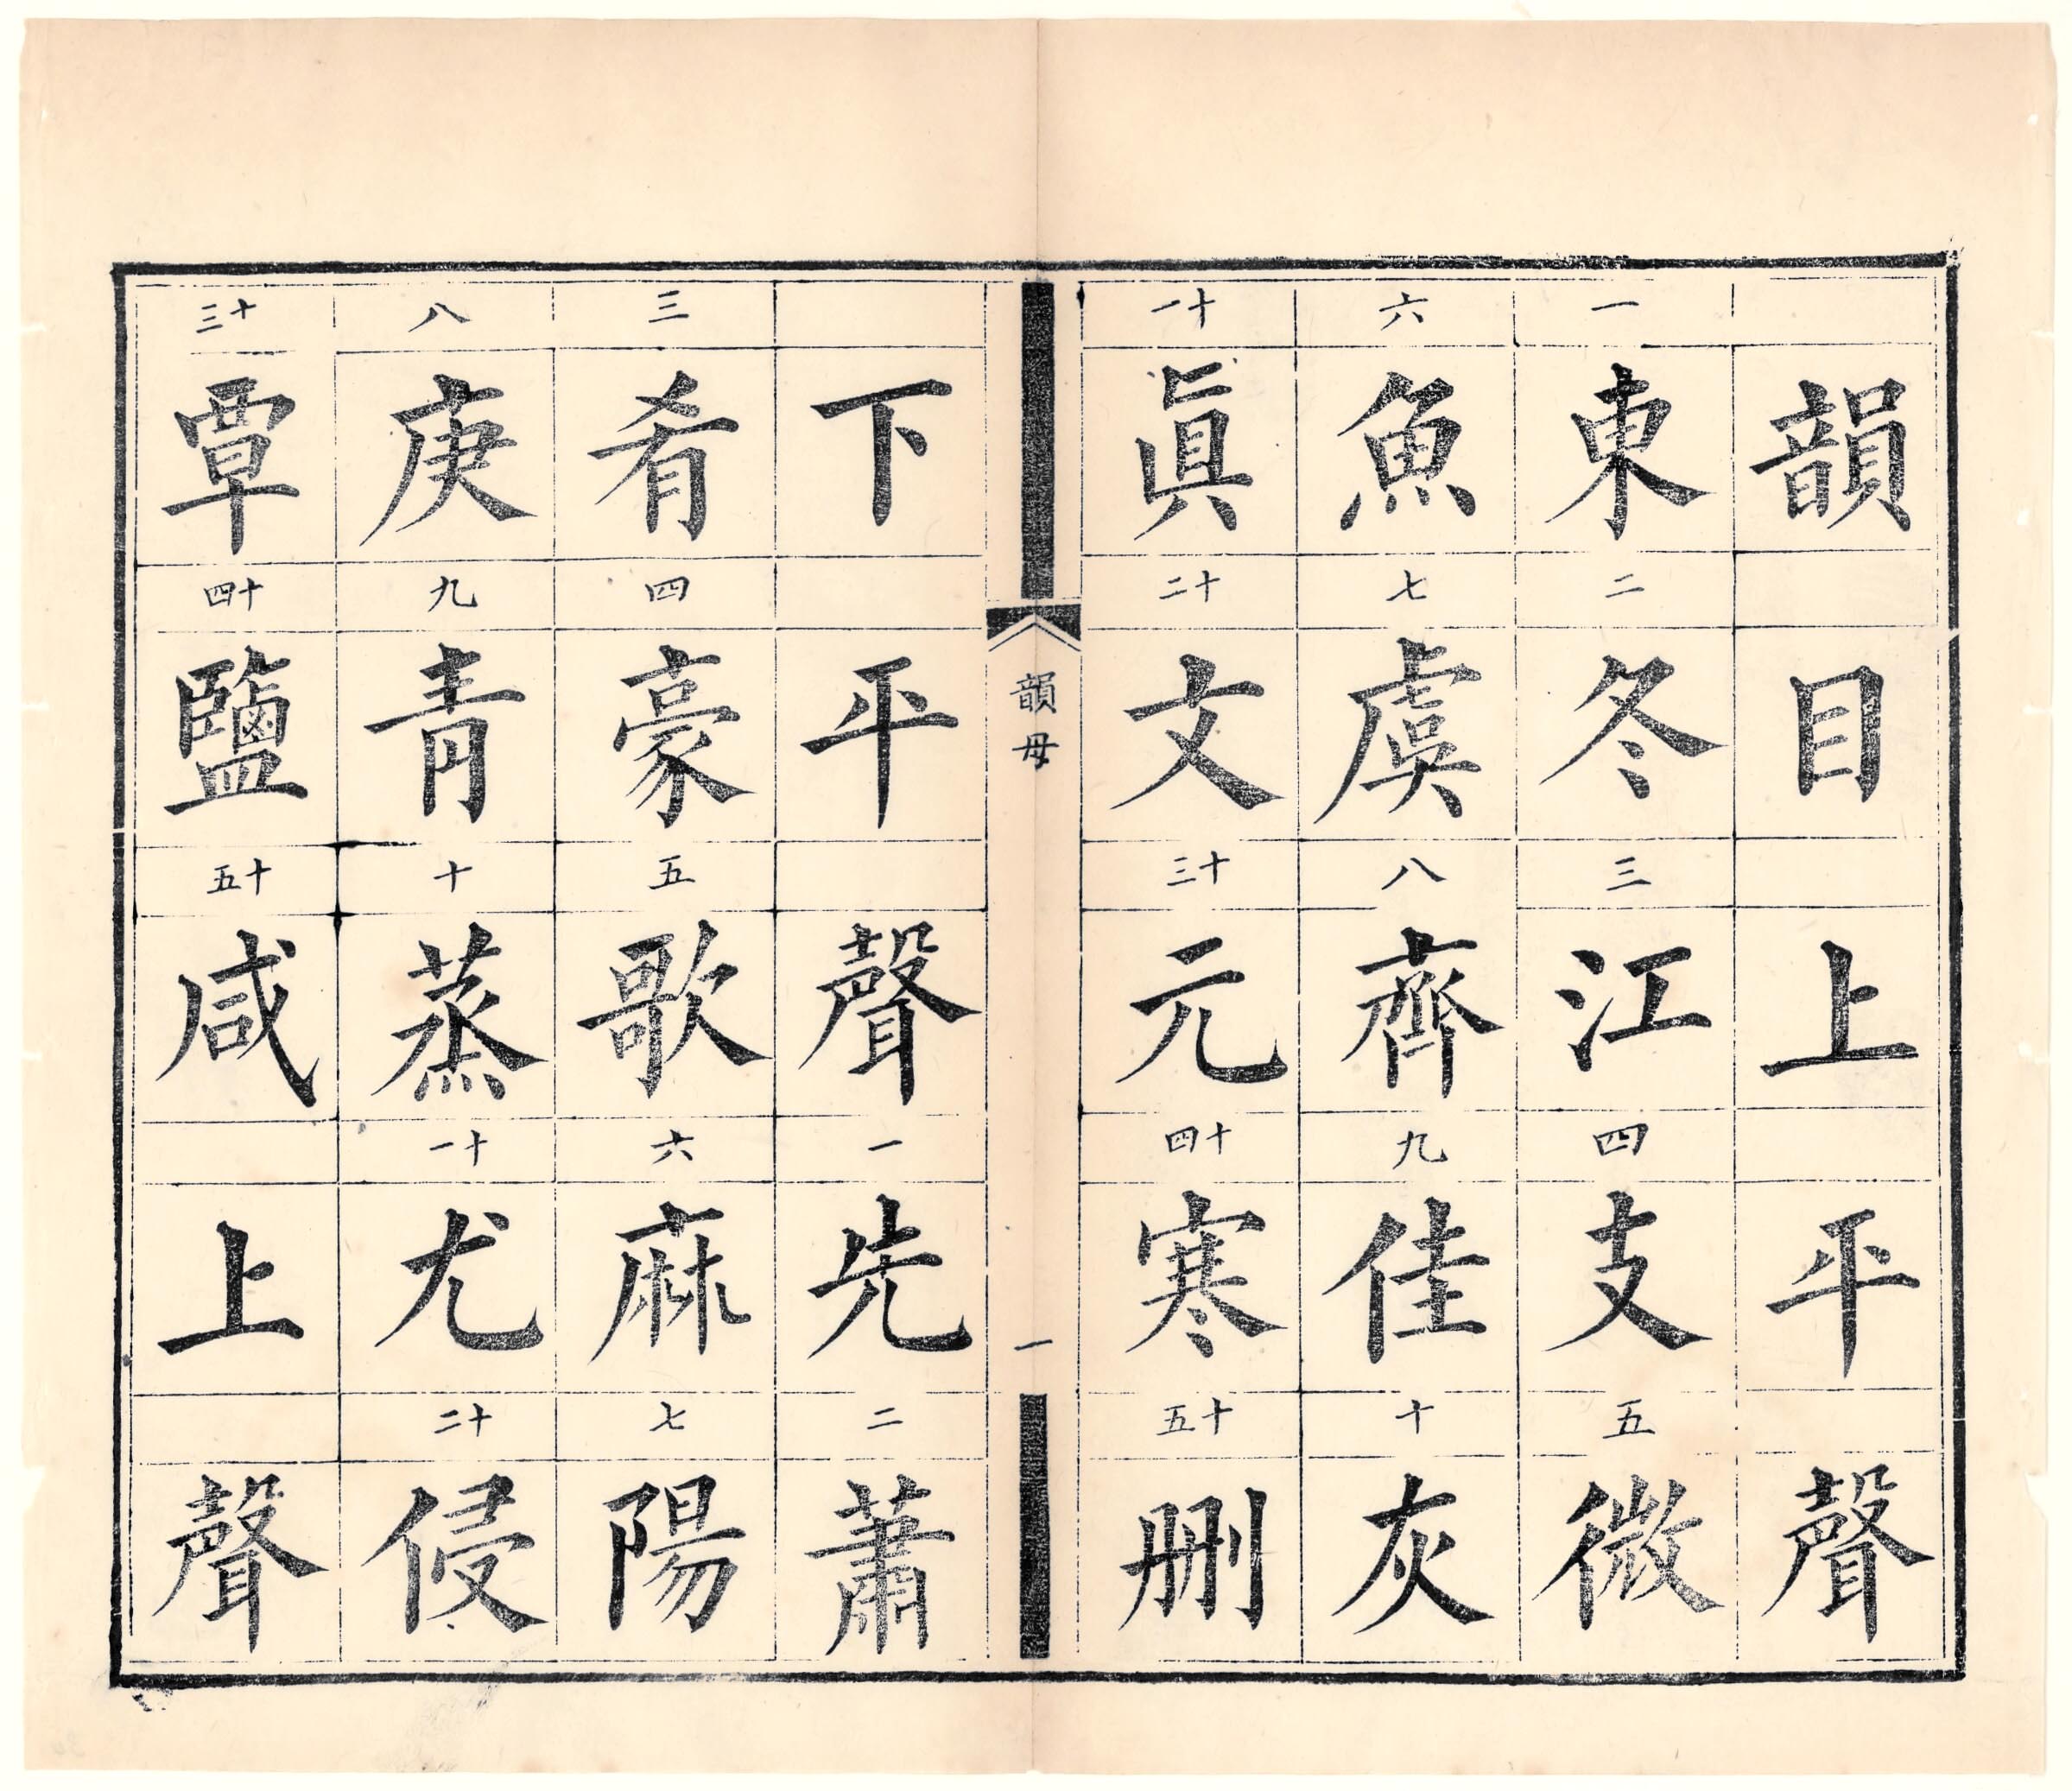 韻目上平聲
一東二冬三江四支五微
六魚七虞八齊九佳十灰
十一眞十二文十三元十四寒十五刪
韻母 一
下平聲一先二蕭
三肴四豪五歌六麻七陽
八庚九青十蒸十一尤十二侵
十三覃十四鹽十五咸上聲